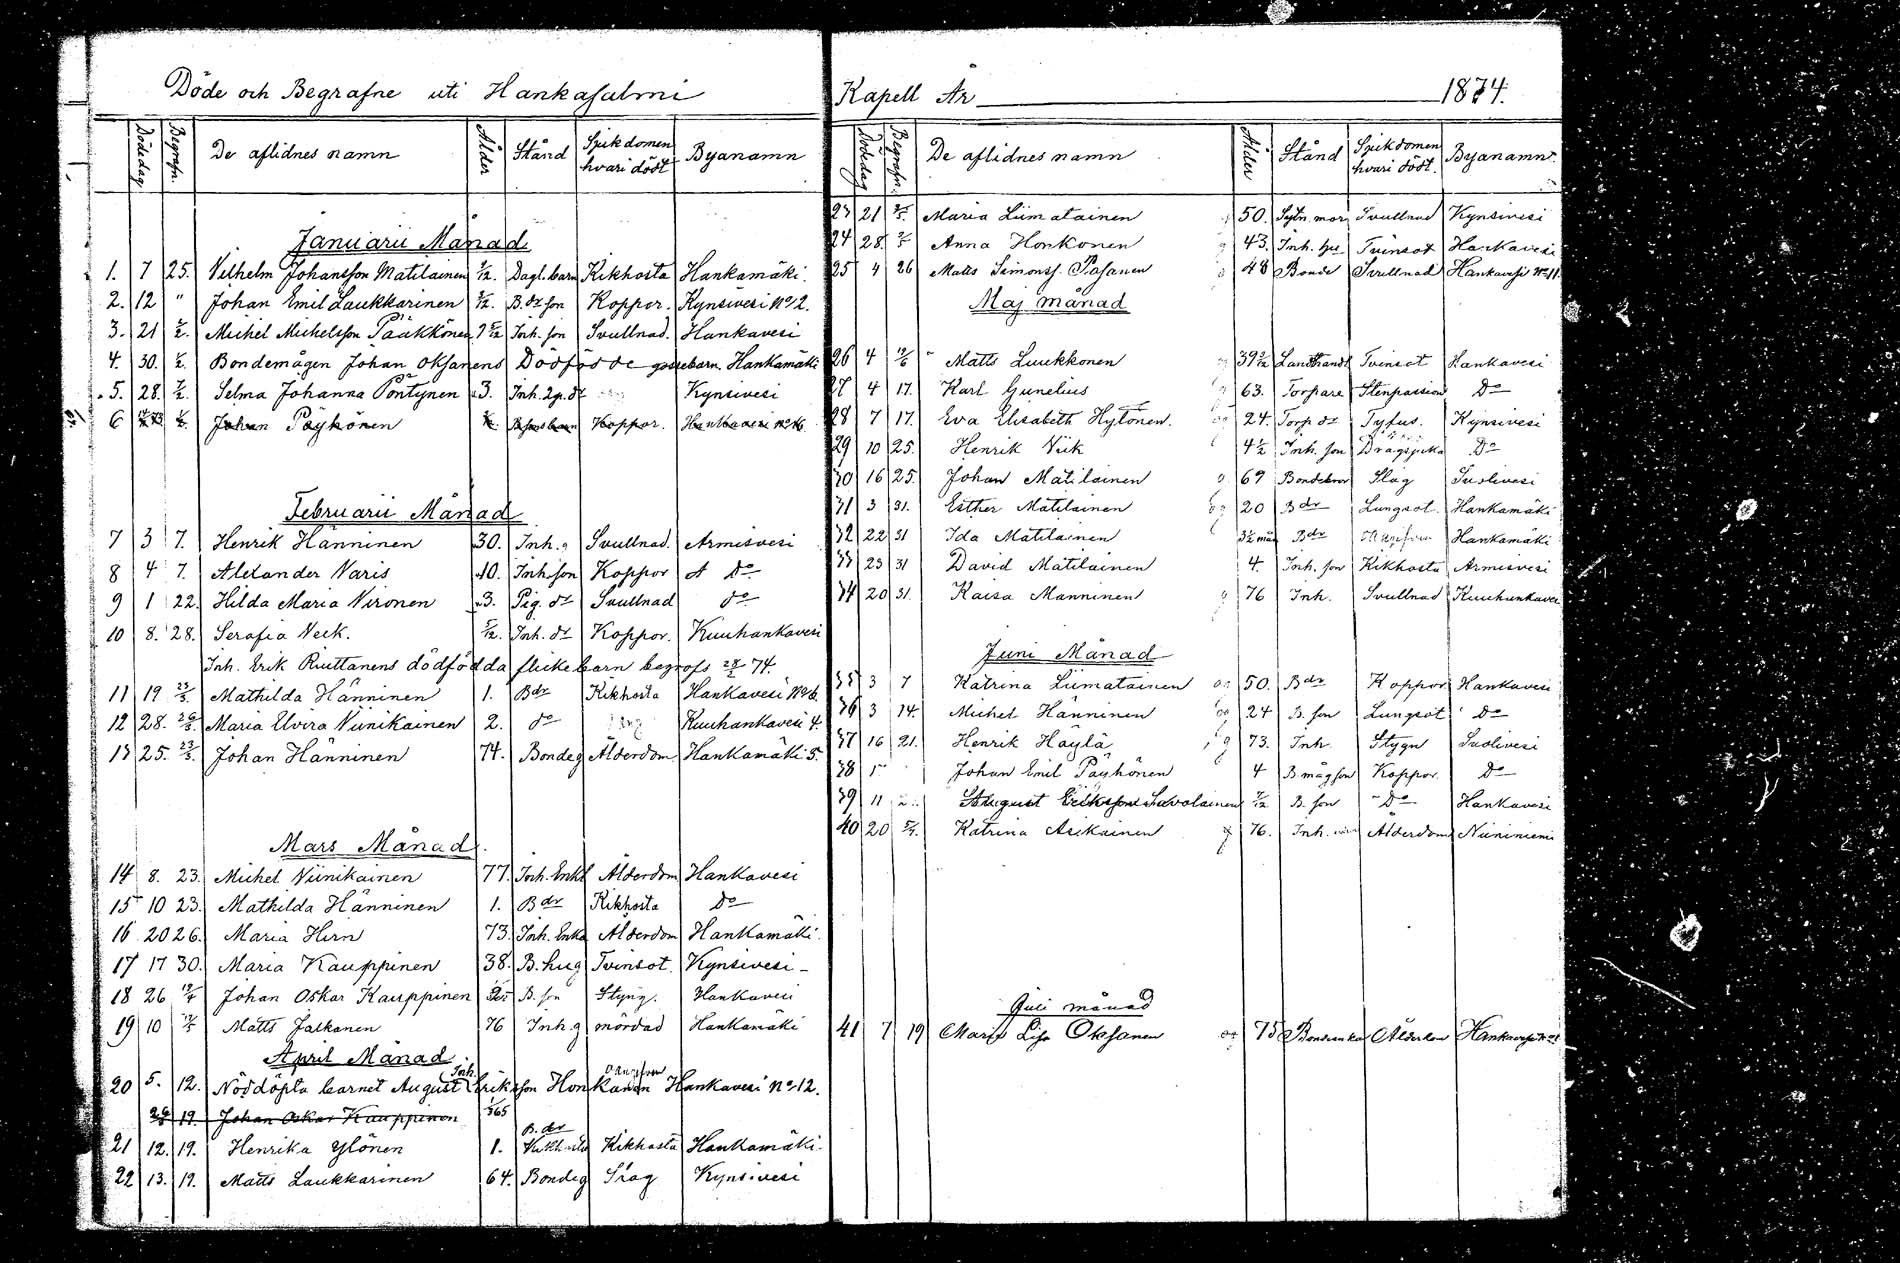 Döde och Begrafne uti Hankasalmi
Dödedag Begrafn. De aflidnes namn Ålder Stånd Sjukdomen hvari dödt Byanamn
Januarii Månad
1. 7 25. Vilhelm Johansson Matilainen /12. Dagl. barn Kikhosta Hankamäki.
2. 12 " Johan Emil Laukkarinen /12. B. dr son Koppor. Kynsivesi No 2.
3. 21 Michel Michelsson Pääkkönen Inh. son Svullnad. Hankavesi
4. 30. Bondemågen Johan Oksanens Dödfödde gossebarn. Hankamäki
5. 28. Selma Johanna Pöntynen 3. Inh. Kynsivesi
6 Johan Pöyhönen Koppor. Hankavesi No 16.
Februarii Månad
7 3 7. Henrik Hänninen 30. Inh. Svullnad. Armisvesi
8 4 7. Alexander Varis 10. Inh. son Koppor Do
9 1 22. Hilda Maria Vironen 3. Pig. dr Svullnad do
10 8. 28. Serafia Veck. 5/12. Inh. dr Koppor. Kuuhankavesi
Inh. Erik Ruttanens dödfödda flickebarn begrofs 28/2 74.
11 19 23/3. Mathilda Hänninen 1. Bdr Kikhosta Hankavesi No 6.
12 28. 26/3. Maria Elvira Niinikainen 2. do Kuuhankavesi 4.
13 25. 23/3. Johan Hänninen 74. Bondeg Ålderdom Hankamäki 5.
Mars Månad.
14 8. 23. Michel Niinikainen 77. Inh. Enkl Ålderdom Hankavesi
15 10 23. Mathilda Hänninen 1. Bdr Kikhosta Do
16 20 26. Maria Hirn 73. Inh. Enka Ålderdom Hankamäki.
17 17 30. Maria Kauppinen 38. B. hug Tvinsot. Kynsivesi
18 26 Johan Oskar Kauppinen B. son Styng. Hankavesi
19 10 Matts Jalkanen 76 Inh. g mördad Hankamäki
April Månad
20 5. 12. Nöddöpta barnet August Inh. Eriksson Honkanen Hankavesi No 12.
19. Johan Oskar Kauppinen /365
21 12. 19. Henrika Ylönen 1. B. dr Kikhosta Hankamäki.
22 13. 19. Matts Laukkarinen 64. Bondeg Slag Kynsivesi
Kapell År 1874.
Dödedag Begrafn. De aflidnes namn Ålder Stånd Sjukdomen hvari dödt. Byanamn.
23 21 Maria Liimatainen 50. Svullnad Kynsivesi
24 28. Anna Honkonen 43. Inh. Tvinsot Hankavesi
25 4 26 Matts Simonss. Pasanen 48 Bonde Svullnad Hankavesi No 11.
Maj månad
26 4 Matts Luukkonen 39 Tvinsot Hankavesi
27 4 17. Karl Gunelius 63. Torpare Stenpassion Do
28 7 17. Eva Elisabeth Hytönen. 24. Torp dr Tyfus. Kynsivesi
29 10 25. Henrik Viik 4½ Inh. son Do
30 16 25. Johan Matilainen 69 Slag Suolivesi
31 3 31. Esther Matilainen 20 Bdr Lungsot. Hankamäki
32 22 31 Ida Matilainen 3½ mån Bdr Hankamäki
33 23 31 David Matilainen 4. Inh. son Kikhosta Armisvesi
34 20 31. Kaisa Manninen 76 Inh. Svullnad Kuuhankavesi
Juni Månad
35 3 7 Katrina Liimatainen 50. Bdr Koppor Hankavesi
36 3 14. Michel Hänninen 24 B. son Lungsot Do
37 16 21. Henrik Häylä 73. Inh. Stygn Suolivesi
38 Johan Emil Pöyhönen 4 B. mågson Koppor. Do
39 11 August Eriksson Savolainen 7/12 B. son Do Hankavesi
40 20 5/7. Katrina Asikainen 76. Inh. Ålderdom Niininiemi
Juli månad
41 7 19 Maria Lisa Oksanen 75 Bondenka Ålderdom Hankavesi